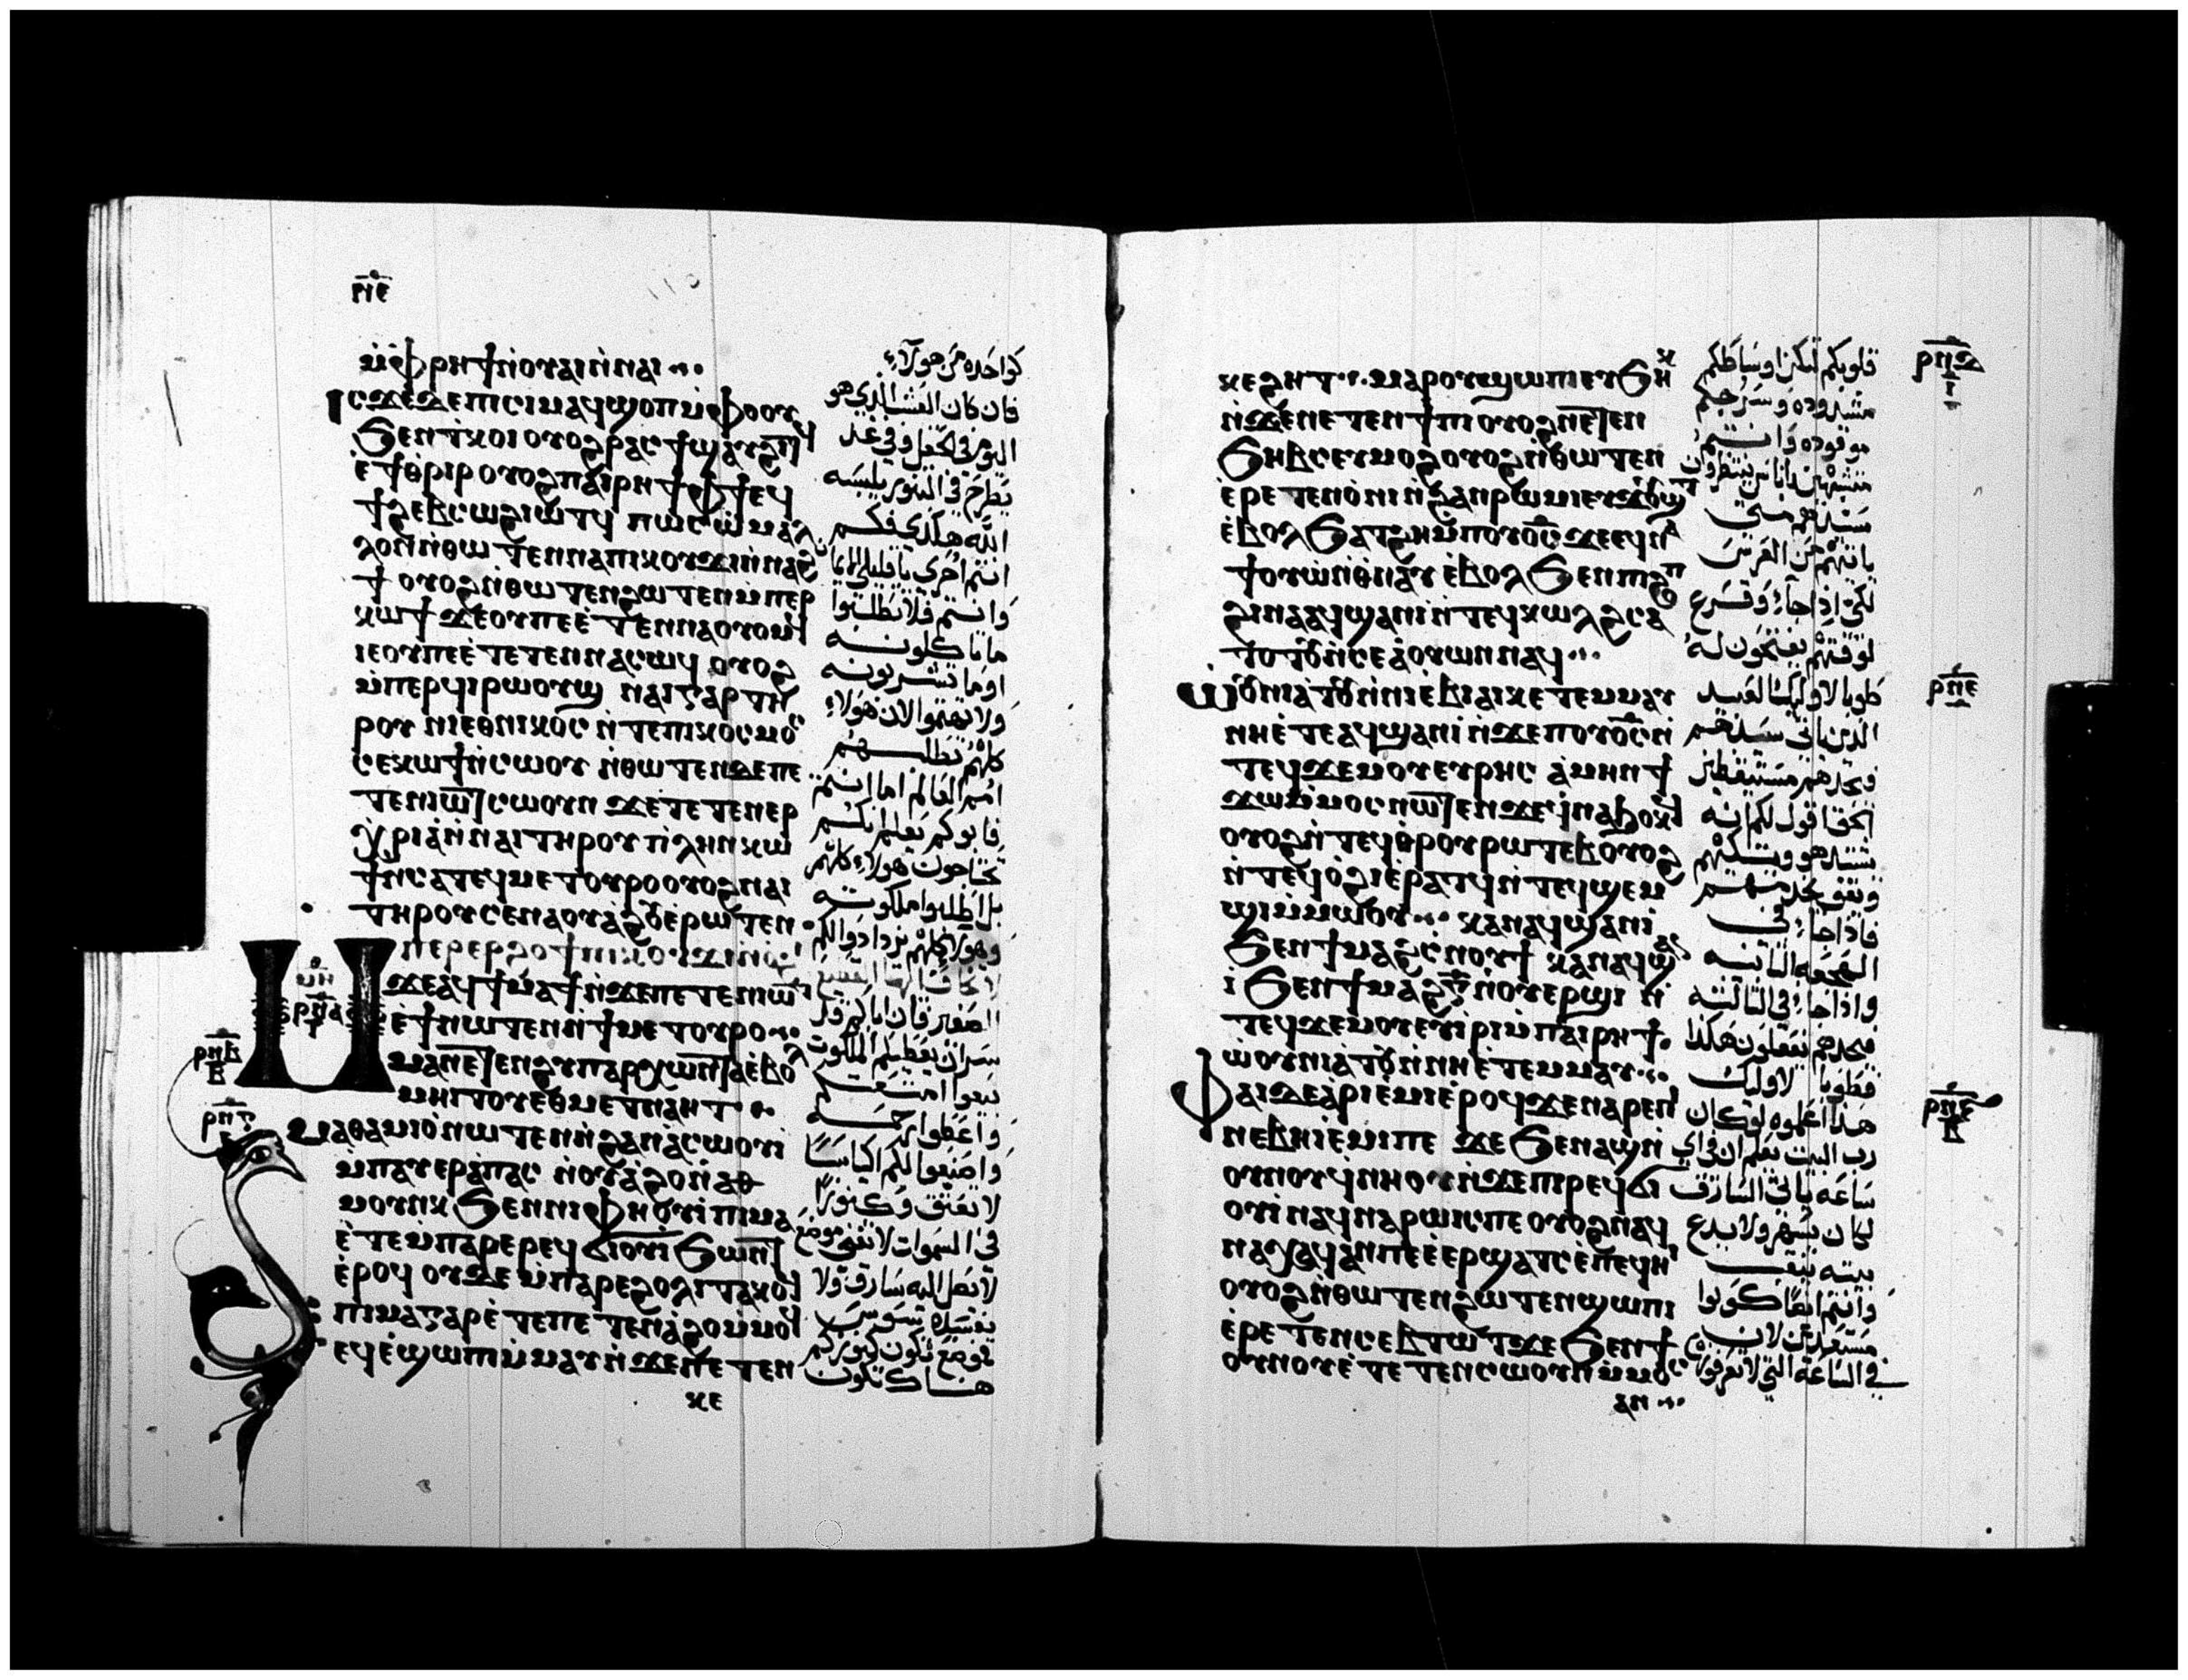 ⲣⲛⲉ
ⲙ̀ⲫⲣⲏϯ ⲛ̀ⲟⲩⲁⲓ ⲛ̀ⲛⲁⲓ
ⲓⲥϫⲉ ⲇⲉ ⲡⲓⲥⲓⲙ ⲁϥϣⲟⲡ ⲙ̀ⲫⲟⲟⲩ
ϧⲉⲛ ⲧⲕⲟⲓ ⲟⲩⲟϩ ⲣⲁⲥϯ ϣⲁⲩϩⲓⲧϥ
ⲉ̀ϯⲑⲣⲓⲣ ⲟⲩⲟϩ ⲡⲁⲓⲣⲏϯ ⲫϯ ϥ
ϯϩⲉⲃⲥⲱ ϩⲓⲱⲧϥ ⲡⲱⲥ ⲙⲁⲗ
ⲗⲟⲛ ⲛ̀ⲑⲱⲧⲉⲛ ⲛⲁ ⲡⲓⲕⲟⲩϫⲓ ⲛ̀ⲛⲁϩ
ϯ ⲟⲩⲟϩ ⲛ̀ⲑⲱⲧⲉⲛ ϩⲱⲧⲉⲛ ⲙ̀ⲡⲉⲣ
ⲕⲱϯ ϫⲉ ⲟⲩ ⲡⲉ ⲉ̀ⲧⲉⲛⲛⲁⲟⲩⲟⲙϥ
ⲓⲉ ⲟⲩ ⲡⲉ ⲉ̀ⲧⲉⲧⲉⲛⲛⲁⲥⲱϥ ⲟⲩⲟϩ
ⲙ̀ⲡⲉⲣϥⲓⲣⲱⲟⲩϣ ⲛⲁⲓ ⲅⲁⲣ ⲧⲏ
ⲣⲟⲩ ⲛⲓⲉⲑⲛⲓⲕⲟⲥ ⲛ̀ⲧⲉ ⲡⲓⲕⲟⲥⲙⲟⲥ
ⲥⲉⲕⲱϯ ⲛ̀ⲥⲱⲟⲩ ⲛ̀ⲑⲱⲧⲉⲛ ⲇⲉ ⲡⲉ
ⲧⲉⲛⲓⲱⲧ ⲥⲱⲟⲩⲛ ϫⲉ ⲧⲉⲧⲉⲛⲉⲣ
ⲭⲣⲓⲁ̀ ⲛ̀ⲛⲁⲓ ⲧⲏⲣⲟⲩ ⲡⲗⲏⲛ ⲕⲱ
ϯ ⲛ̀ⲥⲁ ⲧⲉϥⲙⲉⲧⲟⲩⲣⲟ ⲟⲩⲟϩ ⲛⲁⲓ
ⲧⲏⲣⲟⲩ ⲥⲉⲛⲁⲟⲩⲁϩⲟⲩ ⲉ̀ⲣⲱⲧⲉⲛ
ⲙⲏ
ⲣⲛⲁ
ⲙⲡⲉⲣⲉⲣϩⲟϯ ⲡⲓⲕⲟⲩϫⲓ ⲛ̀ⲟϩⲓ
ϫⲉ ⲁϥϯⲙⲁϯ ⲛ̀ϫⲉ ⲡⲉⲧⲉⲛⲓⲱⲧ
ⲉ̀ϯ ⲛⲱⲧⲉⲛ ⲛ̀ϯⲙⲉⲧⲟⲩⲣⲟ
ⲣⲛⲃ
ⲙⲁ ⲛⲉⲧⲉⲛϩⲩⲡⲁⲣⲭⲱⲛⲧⲁ ⲉ̀ⲃⲟⲗ
ⲙⲏⲓⲧⲟⲩ ⲉⲑⲙⲉⲧⲛⲁⲏⲧ
ⲣⲛⲅ
ⲙⲁⲑⲁⲙⲓⲟ̀ ⲛⲱⲧⲉⲛ ⲛ̀ϩⲁⲛⲁ̀ⲥⲱⲟⲩⲓ
ⲙ̀ⲡⲁⲩⲉⲣⲁ̀ⲡⲁⲥ ⲛ̀ⲟⲩⲁ̀ϩⲟ ⲛ̀ⲁⲑ
ⲙⲟⲩⲛⲕ ϧⲉⲛ ⲛⲓⲫⲏⲟⲩⲓ̀ ⲡⲓⲙⲁ
ⲉ̀ⲧⲉ ⲙ̀ⲡⲁⲣⲉ ⲣⲉϥϭⲓⲟⲩⲓ̀ ϧⲱⲛⲧ
ⲉ̀ⲣⲟϥ ⲟⲩⲇⲉ ⲙ̀ⲡⲁⲣⲉ ϩⲟⲗⲓ ⲧⲁⲕⲟϥ
ⲡⲓⲙⲁ ⲅⲁⲣ ⲉ̀ⲧⲉ ⲡⲉⲧⲉⲛⲁ̀ϩⲟ ⲙ̀ⲙⲟϥ
ⲉϥⲉ̀ϣⲱⲡⲓ ⲙ̀ⲙⲁⲩ ⲛ̀ϫⲉ ⲡⲉⲧⲉⲛ
ⲕⲉ
كواحده من هولآء
فان كان العشب الذي هو
اليوم في الحقل وفي غد
يطرح في التنور يلبسه
الله هكذى فكم
انتم احرى يا قليلي الايمان
وانتم فلا تطلبوا
ما تاكلونه
اوما تشربونه
ولا تهتموا لان هولاء
كلهم تطلبهم
امم العالم اما انتم
فابوكم يعلم انكم
تحتاجون هولاء كلهم
بل اطلبوا ملكوته
وهولا كلهم تزدادوا لكم
لا تخاف ايها القطيع
الصغير فان اباكم قد
سر ان يعطيكم الملكوت
بيعوا امتعتكم
واعطوا رحمه
واصنعوا لكم اكياسًا
لا تعتق وكنورًا
في السموات لا تفنى موضع
لا يصل اليه سارق ولا
يفسده سوس
موضع تكون كنوزكم
هناك تكون
ⲕⲉ ϩⲏⲧ ⲙⲁⲣⲟⲩϣⲱⲡⲓ ⲉⲩⲙⲏⲕ
ⲛ̀ϫⲉ ⲛⲉⲧⲉⲛϯⲡⲓ ⲟⲩⲟϩ ⲛⲉⲧⲉⲛ
ϧⲏⲃⲥ ⲉⲩⲙⲟϩ ⲟⲩⲟϩ ⲛ̀ⲑⲱⲧⲉⲛ
ⲉ̀ⲣⲉⲧⲉⲛⲟ̀ⲛⲓ ⲛ̀ϩⲁⲛⲣⲱⲙⲓ ⲉⲩϫⲟⲩϣⲧ
ⲉ̀ⲃⲟⲗ ϧⲁⲧϩⲏ ⲙ̀ⲡⲟⲩⲟ̅ⲥ̅ ϫⲉ ⲉϥⲛⲁ
ⲧⲟⲩⲱ̀ⲛ ⲑⲛⲁⲩ ⲉ̀ⲃⲟⲗ ϧⲉⲛ ⲡⲓϩⲟⲡ
ϩⲓⲛⲁ ⲁϥϣⲁⲛⲓ̀ ⲛ̀ⲧⲉϥⲕⲱⲗϩ ⲥⲁ
ⲧⲟⲧⲟⲩ ⲛ̀ⲥⲉⲁ̀ⲟⲩⲱⲛ ⲛⲁϥ
ⲱⲟⲩⲛⲓⲁ̀ⲧⲟⲩ ⲛ̀ⲛⲓⲉ̀ⲃⲓⲁⲓⲕ ⲉ̀ⲧⲉⲙⲙⲁⲩ
ⲛⲏ ⲉ̀ⲧⲉ ⲁϥϣⲁⲛⲓ̀ ⲛ̀ϫⲉ ⲡⲟⲩⲟ̅ⲥ̅ ⲛ̀
ⲧⲉϥϫⲉⲙⲟⲩ ⲉⲩⲣⲏⲥ ⲁ̀ⲙⲏⲛ ϯ
ϫⲱ ⲙ̀ⲙⲟⲥ ⲛⲱⲧⲉⲛ ϫⲉ ϥⲛⲁϧⲟⲕϥ
ⲟⲩⲟϩ ⲛ̀ⲧⲉϥⲑⲣⲟⲩⲣⲱⲧⲉⲃ ⲟⲩⲟϩ
ⲛ̀ⲧⲉϥⲟ̀ϩⲓ ⲉ̀ⲣⲁⲧϥ ⲛ̀ⲧⲉϥϣⲉⲙ
ϣⲓ ⲙ̀ⲙⲱⲟⲩ ⲕⲁⲛ ⲁϥϣⲁⲛⲓ̀
ϧⲉⲛ ϯⲙⲁϩⲥ̀ⲛⲟⲩϯ ⲕⲁⲛ ⲁϥϣⲁⲛ
ⲓ̀ ϧⲉⲛ ϯⲙⲁϩⲅ̅ ⲛ̀ⲟⲩⲉⲣϣⲓ ⲛ̀
ⲧⲉϥϫⲉⲙⲟⲩ ⲉⲩⲓ̀ⲣⲓ ⲙ̀ⲡⲁⲓⲣⲏϯ
ⲱ̀ⲟⲩⲛⲓⲁ̀ⲧⲟⲩ ⲛ̀ⲛⲏ ⲉ̀ⲧⲉⲙⲙⲁⲩ
ⲫⲁⲓ ⲇⲉ ⲁ̀ⲣⲓⲉ̀ⲙⲓ ⲉ̀ⲣⲟϥ ϫⲉ ⲛⲁⲣⲉ ⲡⲓ
ⲛⲉⲃⲏⲓ ⲉ̀ⲙⲓ ⲡⲉ ϫⲉ ϧⲉⲛ ⲁϣ ⲛ̀
ⲟⲩⲛⲟⲩ ϥⲛⲏⲟⲩ ⲛ̀ϫⲉ ⲡⲓⲣⲉϥϭⲓ
ⲟⲩⲓ̀ ⲛⲁϥⲛⲁⲣⲱⲓⲥ ⲡⲉ ⲟⲩⲟϩ ⲛⲁϥ
ⲛⲁⲭⲁϥ ⲁⲛ ⲡⲉ ⲉ̀ⲉⲣϣⲁⲧⲥ ⲉ̀ⲡⲉϥⲏⲓ
ⲟⲩⲟϩ ⲛ̀ⲑⲱⲧⲉⲛ ϩⲱⲧⲉⲛ ϣⲱⲡⲓ
ⲉ̀ⲣⲉⲧⲉⲛⲥⲉⲃⲧⲱⲧ ϫⲉ ϧⲉⲛ ϯ
ⲟⲩⲛⲟⲩ ⲉ̀ⲧⲉⲧⲉⲛⲥⲱⲟⲩⲛ ⲙ̀ⲙⲟⲥ
ⲁⲛ
قلوبكم لتكن اوساطكم
مشدوده وسرجكم
موقوده وانتم
متشبهين باناس ينتظرون
سيدهم متى
ياتيهم من العرس
لكي اذا جآء وقرع
لوقتهم يفتحون له
طوبا لاوليك العبيد
الذين ياتي سيدهم
فيجدهم مستيقظين
الحق اقول لكم انه
يشتد هو ويتكيهم
ويقف يخدمهم
فاذا جاء في
الهجعه الثانيه
واذا جاء في الثالثه
فيجدهم يفعلون هكذا
فطوبا لاوليك
هذا اعلموه لو كان
رب البيت يعلم ان في اي
ساعه ياتي السارق
لكان يسهر ولا يدع
بيته ينقب
وانتم ايضًا كونوا
مستعدين لان
في الساعة التي لا تعرفوا
ⲣⲛⲇ
ⲓ
ⲣⲛⲉ
ⲣⲛⲋ
ⲃ